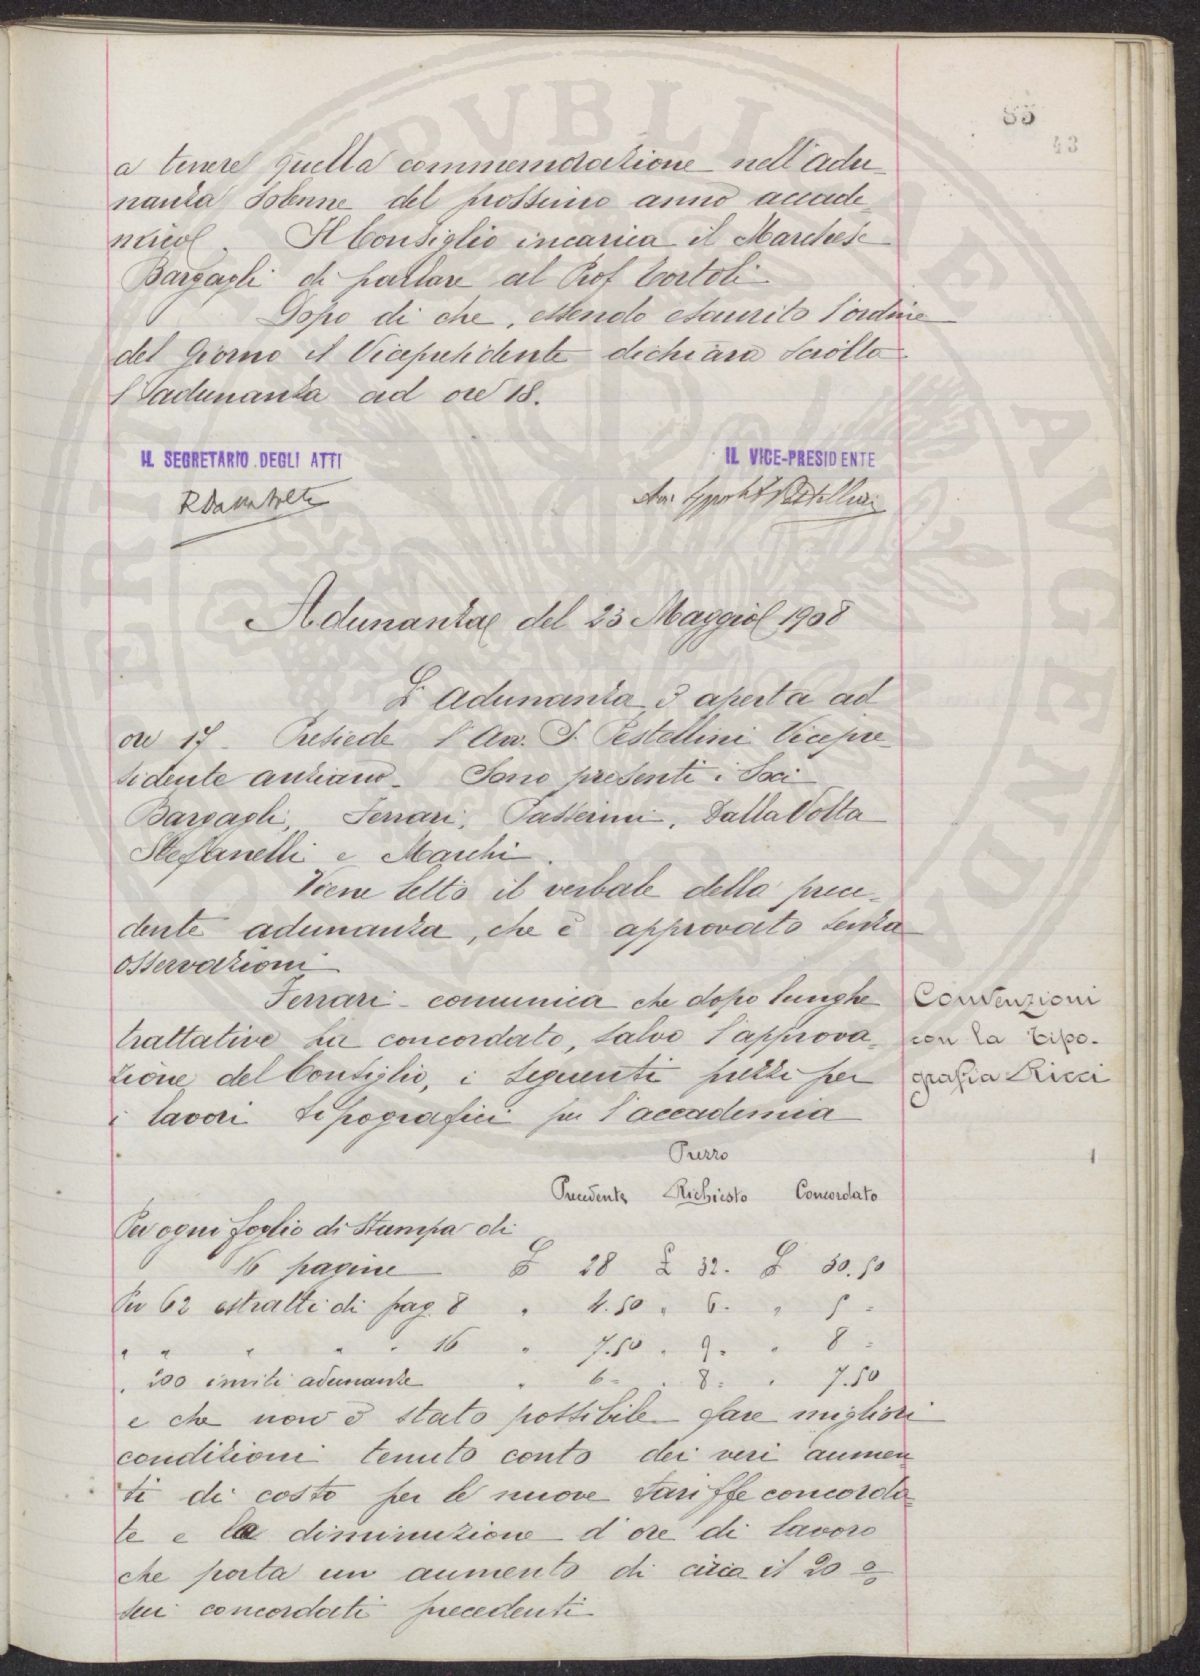 85
43
a tenere quella commemorazione nell'adu-
nanza solenne del prossimo anno accade-
mico. Il Consiglio incarica il Marchese
Bargagli di parlare al Prof Tortoli
Dopo di che, essendo esaurito l'ordine
del Giorno il Vicepresidente dichiara sciolta
l'adunanza ad ore 18.
IL SEGRETARIO DEGLI ATTI
IL VICE-PRESIDENTE
R Dalla Volta
Avv. Ippolito Pestellini
Adunanza del 23 Maggio 1908
L'adunanza è aperta ad
ore 17. Presiede l'Avv. I. Pestellini Vicepre-
sidente anziano. Sono presenti i Soci
Bargagli, Ferrari, Passerini, Dalla Volta
Stefanelli e Marchi.
Viene letto il verbale della prece-
dente adunanza, che è approvato senza
osservazioni
Ferrari - comunica che dopo lunghe
trattative ha concordato, salvo l'approva-
zione del Consiglio, i seguenti prezzi per
i lavori tipografici per l'accademia
Convenzioni
con la Tipo-
grafia Ricci
Prezzo
Precedente Richiesto Concordato
Per ogni foglio di Stampa di
16 pagine £ 28 £ 32. £ 30.50
Per 62 estratti di pag. 8 " 4.50 " 6. " 5 =
" " " " " 16 " 7.50 " 9. " 8 =
" 200 inviti adunanze " 6= " 8= " 7.50
e che non è stato possibile fare migliori
condizioni tenuto conto dei veri aumen-
ti di costo per le nuove tariffe concorda-
te e la diminuzione d'ore di lavoro
che porta un aumento di circa il 20 %
sui concordati precedenti